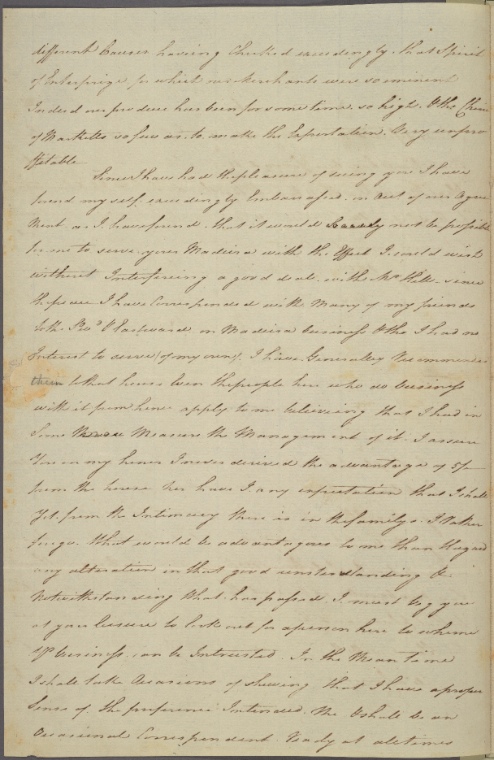 different Causes having Checked exceedingly that Spirit
of Enterprize for which our Merchants were so eminent
Indeed our produce has been for some time so high, & the Chain
of Marketts so few as to make the Exportation Very unpro
ffitable
Since I have had the pleasure of seeing you I have
found my self exceedingly Embarrassed in Act of our Agree
ment as I have found that it would not be possible
for me to serve your Madeira with the Effect I could wish
without Interfering a good deal with Mr Hill since
the peace I have Corresponded with Many of my friends
to the in Madeira business & tho I had no
Interest to serve (of my own) I have Generally Recommended
them to that house been the people here who do business
with it from hence apply to me believing that I had in
Some Measure the Management of it. I assure
You on my honor I never derived the advantage of
from the house nor have I any expectation that I shall
Yet from the Intimacy there is in the familys I Rather
forgo what would be advantageous to me than Hazard
any alteration in that good understanding &
Notwithstanding what has passed I must beg you
at your leisure to look out for a person here to whome
yr business can be Intrusted. In the Mean time
I shall take Occasions of shewing that I have a proper
Sence of the preference Intended Me & shall be an
Occasional Correspondent Ready at all times